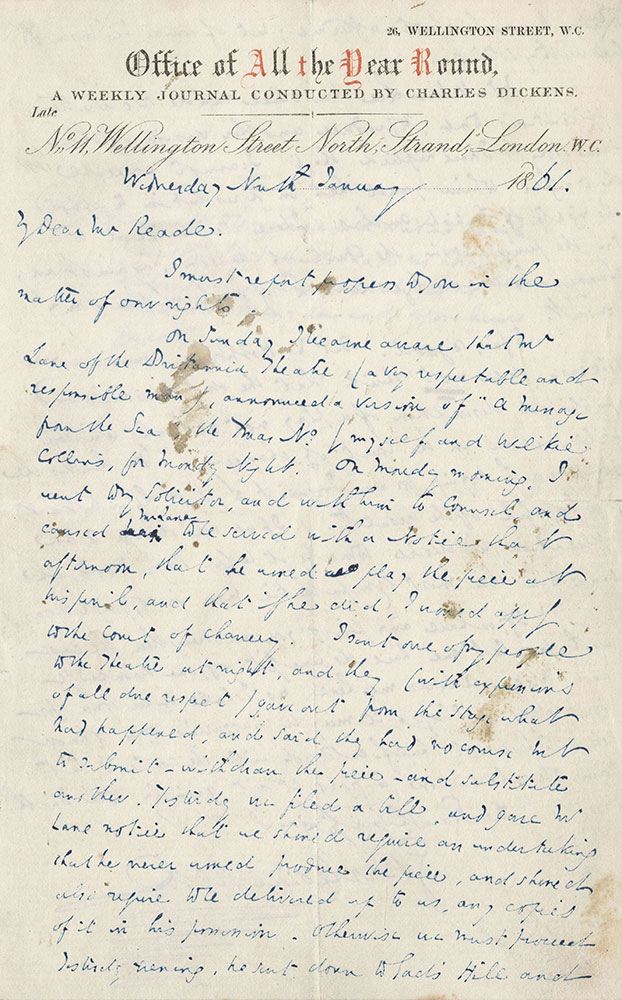 26, WELLINGTON STREET, W.C.
Office of All the Year Round,
A WEEKLY JOURNAL CONDUCTED BY CHARLES DICKENS.
Late
No. 11, Wellington Street North, Strand, London. W.C.
Wednesday Ninth January 1861.
My Dear Mr Reade.
I must report progress to you in the
matter of our rights.
On Sunday I became aware that Mr
Lane of the Britannia Theatre (a very respectable and
responsible man), announced a version of "A Message
from the Sea", the Xmas No. by myself and Wilkie
Collins, for Monday Night. On Monday morning, I
went to my Solicitor, and with him to Counsel, and
caused Mr Lane to be served with a Notice that
afternoon, that he would play the piece at
his peril, and that if he did, I would apply
to the Court of Chancery. I sent one of my people
to the Theatre at night, and they (with expressions
of all due respect) gave out from the stage what
had happened, and said they had no course but
to submit - withdraw the piece - and substitute
another. Yesterday we filed a bill, and gave Mr
Lane notice that we should require an undertaking
that he never would produce the piece, and should
also require to be delivered up to us, any copies
of it in his possession. Otherwise we must proceed
Yesterday evening, he sent down to Gad's Hill and